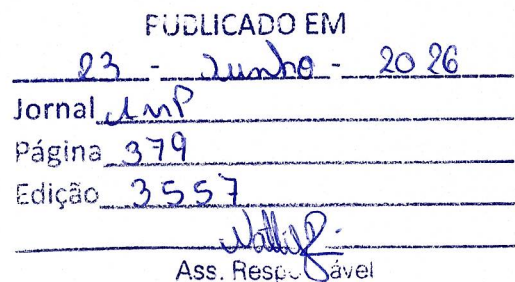 PUBLICADO EM
23 - Junho - 2026
Jornal AMP
Página 379
Edição 3557
Ass. Responsável